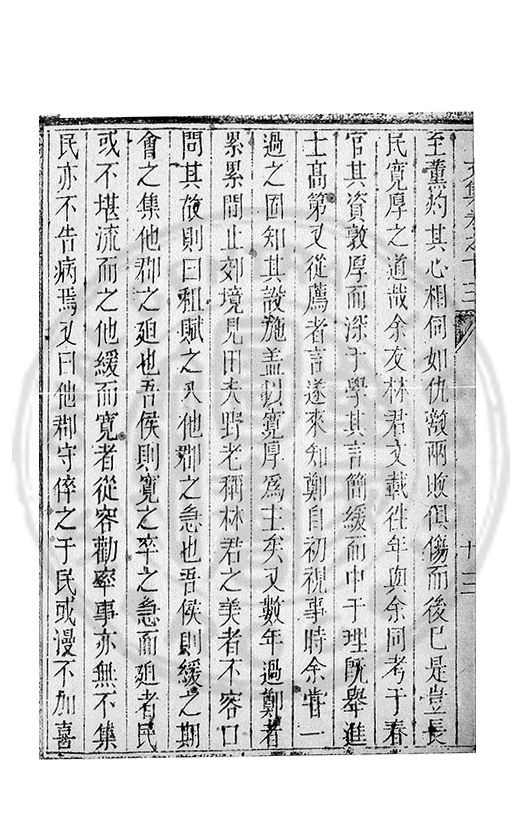 文集卷之十三 十三
至薰灼其心相伺如仇敵兩敗俱傷而後已是豈長
民寬厚之道哉余友林君文載徃年與余同考于春
官其資敦厚而深于學其言簡緩而中于理旣舉進
士高第又從薦者言遂來知鄭自初視事時余甞一
過之固知其設施盖以寬厚爲主矣又數年過鄭者
累累間止郊境見田夫野老稱林君之美者不容口
問其故則曰租賦之入他郡之急也吾侯則緩之期
會之集他郡之廹也吾侯則寬之卒之急而廹者民
或不堪流而之他緩而寬者從容勸率事亦無不集
民亦不告病焉又曰他郡守倅之于民或漫不加喜